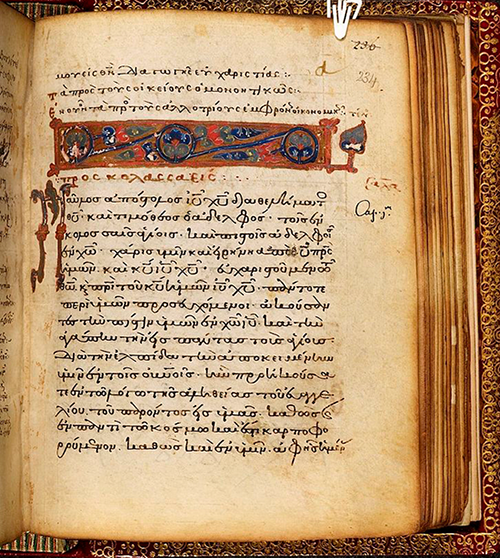 234
α
ευχαριστίας :
Τὰ πρὸς τοὺς οἰκείους ὁμονοητικῶς :
τὰ πρὸς τοὺς ἀλλοτρίους
προς κολασσαεις :
Παῦλος ἀπόστολος ἰῦ χῦ διὰ θελήματος
θῦ καὶ τιμόθεος ὁ ἀδελφός. τοῖς ἐν
κολοσσαῖς ἁγίοις. καὶ πιστοῖς ἀδελφοῖς
ἐν χῶ. χάρις ὑμῖν καὶ εἰρήνη ἀπὸ θῦ πρς
ἡμῶν. καὶ κῦ ἰῦ χῦ. εὐχαριστοῦμεν τῶ
θῶ καὶ πρὶ τοῦ κῦ ἡμῶν ἰῦ χῦ. πάντοτε
περὶ ὑμῶν προσευχόμενοι. ἀκούσαν
τες τὴν πίστιν ὑμῶν ἐν χῶ ἰῦ καὶ τὴν
ἀγάπην τὴν εἰς πάντας τοὺς ἁγίους.
διὰ τὴν ἐλπίδα τὴν ἀποκειμένην
ὑμῖν ἐν τοῖς οὐνοῖς. ἣν προηκούσα
τε ἐν τῶ λόγω τῆς ἀληθείας τοῦ εὐαγγε
λίου. τοῦ παρόντος εἰς ὑμᾶς. καθὼς
ἐν παντὶ τῶ κόσμω καὶ ἔστιν καρποφο
ρούμενον. καθὼς καὶ ἐν ὑμῖν. ἀφ ῆς ἡμέρ